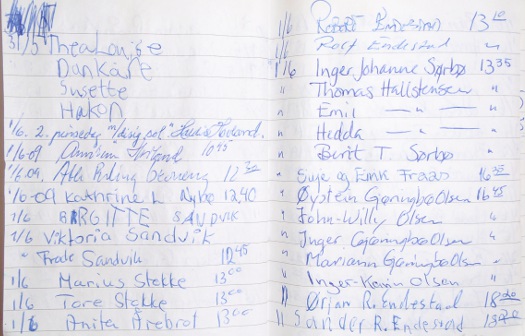 31/5 Thea Louise
Dankåre
Susette
Håkon
1/6. 2. pinsedag "deilig sol"
1/6-09 10 45
1/6.09. 12 30
1/6-09 Kathrine L Nybø 12.40
1/6 BIRGITTE SANDVIK
1/6 Viktoria Sandvik
" Frode Sandvik 12 45
1/6 Marius Stokke 13 00
1/6 Tore Stokke 13 00
1/6 Anita Årebrot 13 00
1/6 Robert Endestad 13 10
1/6 Rolf Endestad "
1/6 Inger Johanne Sørbø 13 35
" Thomas Hallstensen "
" Emil — " — "
" Hedda — " — "
" Berit T. Sørbø "
" og 16 35
" Øystein Gjøringbø Olsen 16 45
" John-Willy Olsen "
" Inger Gjøringbø Olsen "
" Mariann Gjøringbø Olsen "
" Inger-Karin Olsen "
" Ørjan R. Endestad
" Sander R. Endestad